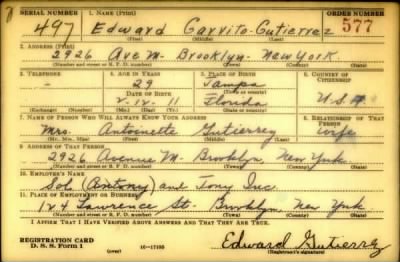 SERIAL NUMBER 1. NAME (Print) ORDER NUMBER
497 Edward Garrito-Gutierrez 577
(First) (Middle) (Last)
2. ADDRESS (Print)
2926 Ave M- Brooklyn- New York.
(Number and street or R. F. D. number) (Town) (County) (State)
3. TELEPHONE 4. AGE IN YEARS 5. PLACE OF BIRTH 6. COUNTRY OF CITIZENSHIP
29 Tampa
DATE OF BIRTH (Town or county)
2-12-11 Florida U.S.A.
(Exchange) (Number) (Mo.) (Day) (Yr.) (State or country)
7. NAME OF PERSON WHO WILL ALWAYS KNOW YOUR ADDRESS 8. RELATIONSHIP OF THAT PERSON
Mrs. Antoinette Gutierrez wife
(Mr., Mrs., Miss) (First) (Middle) (Last)
9. ADDRESS OF THAT PERSON
2926 Avenue M- Brooklyn, New York
(Number and street or R. F. D. number) (Town) (County) (State)
10. EMPLOYER'S NAME
Sol (Antony) and Tony Inc.
11. PLACE OF EMPLOYMENT OR BUSINESS
124 Lawrence St- Brooklyn New York
(Number and street or R. F. D. number) (Town) (County) (State)
I AFFIRM THAT I HAVE VERIFIED ABOVE ANSWERS AND THAT THEY ARE TRUE.
REGISTRATION CARD
D. S. S. Form 1 (over) 16-17105 Edward Gutierrez
(Registrant's signature)